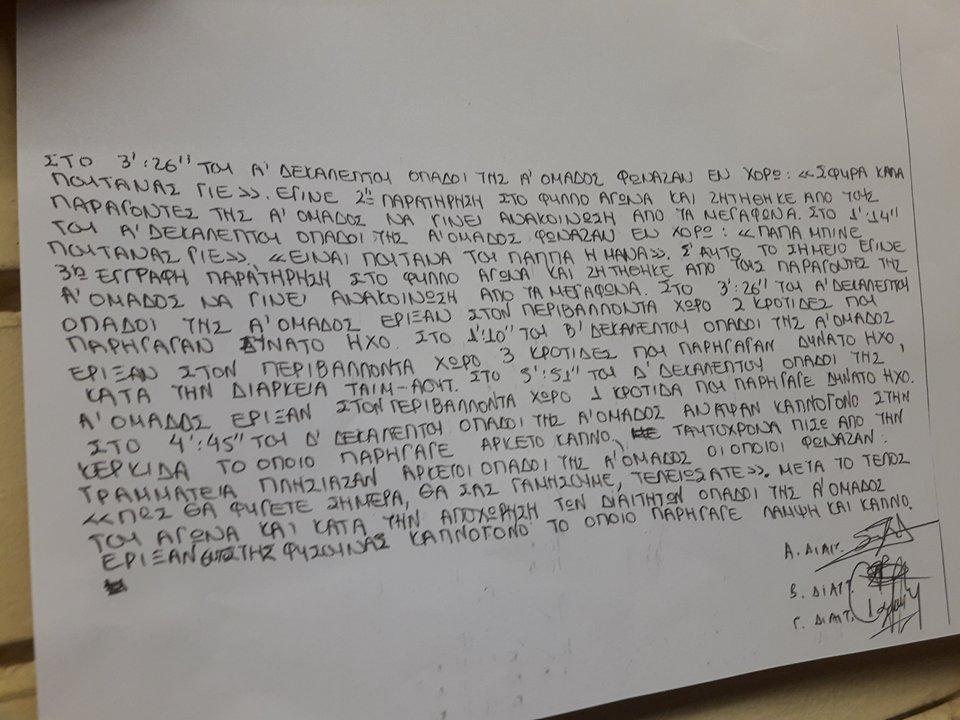 ΣΤΟ 3':26'' ΤΟΥ Α' ΔΕΚΑΛΕΠΤΟΥ ΟΠΑΔΟΙ ΤΗΣ Α' ΟΜΑΔΟΣ ΦΩΝΑΖΑΝ ΕΝ ΧΟΡΩ: «ΣΦΥΡΑ ΚΑΠΑ
ΠΟΥΤΑΝΑΣ ΓΙΕ». ΕΓΙΝΕ 2η ΠΑΡΑΤΗΡΗΣΗ ΣΤΟ ΦΥΛΛΟ ΑΓΩΝΑ ΚΑΙ ΖΗΤΗΘΗΚΕ ΑΠΟ ΤΟΥΣ
ΠΑΡΑΓΟΝΤΕΣ ΤΗΣ Α' ΟΜΑΔΟΣ ΝΑ ΓΙΝΕΙ ΑΝΑΚΟΙΝΩΣΗ ΑΠΟ ΤΑ ΜΕΓΑΦΩΝΑ. ΣΤΟ 1':14''
ΤΟΥ Α' ΔΕΚΑΛΕΠΤΟΥ ΟΠΑΔΟΙ ΤΗΣ Α' ΟΜΑΔΟΣ ΦΩΝΑΖΑΝ ΕΝ ΧΟΡΩ: «ΠΑΠΑ ΜΠΙΝΕ
ΠΟΥΤΑΝΑΣ ΓΙΕ», «ΕΙΝΑΙ ΠΟΥΤΑΝΑ ΤΟΥ ΠΑΠΠΑ Η ΜΑΝΑ». Σ' ΑΥΤΟ ΤΟ ΣΗΜΕΙΟ ΕΓΙΝΕ
3η ΕΓΓΡΑΦΗ ΠΑΡΑΤΗΡΗΣΗ ΣΤΟ ΦΥΛΛΟ ΑΓΩΝΑ ΚΑΙ ΖΗΤΗΘΗΚΕ ΑΠΟ ΤΟΥΣ ΠΑΡΑΓΟΝΤΕΣ ΤΗΣ
Α' ΟΜΑΔΟΣ ΝΑ ΓΙΝΕΙ ΑΝΑΚΟΙΝΩΣΗ ΑΠΟ ΤΑ ΜΕΓΑΦΩΝΑ. ΣΤΟ 3':26'' ΤΟΥ Α' ΔΕΚΑΛΕΠΤΟΥ
ΟΠΑΔΟΙ ΤΗΣ Α' ΟΜΑΔΟΣ ΕΡΙΞΑΝ ΣΤΟΝ ΠΕΡΙΒΑΛΛΟΝΤΑ ΧΩΡΟ 2 ΚΡΟΤΙΔΕΣ ΠΟΥ
ΠΑΡΗΓΑΓΑΝ ΔΥΝΑΤΟ ΗΧΟ. ΣΤΟ 1':10'' ΤΟΥ Β' ΔΕΚΑΛΕΠΤΟΥ ΟΠΑΔΟΙ ΤΗΣ Α' ΟΜΑΔΟΣ
ΕΡΙΞΑΝ ΣΤΟΝ ΠΕΡΙΒΑΛΛΟΝΤΑ ΧΩΡΟ 3 ΚΡΟΤΙΔΕΣ ΠΟΥ ΠΑΡΗΓΑΓΑΝ ΔΥΝΑΤΟ ΗΧΟ,
ΚΑΤΑ ΤΗΝ ΔΙΑΡΚΕΙΑ ΤΑΙΜ-ΑΟΥΤ. ΣΤΟ 5':51'' ΤΟΥ Δ' ΔΕΚΑΛΕΠΤΟΥ ΟΠΑΔΟΙ ΤΗΣ
Α' ΟΜΑΔΟΣ ΕΡΙΞΑΝ ΣΤΟΝ ΠΕΡΙΒΑΛΛΟΝΤΑ ΧΩΡΟ 1 ΚΡΟΤΙΔΑ ΠΟΥ ΠΑΡΗΓΑΓΕ ΔΥΝΑΤΟ ΗΧΟ.
ΣΤΟ 4':45'' ΤΟΥ Δ' ΔΕΚΑΛΕΠΤΟΥ ΟΠΑΔΟΙ ΤΗΣ Α' ΟΜΑΔΟΣ ΑΝΑΨΑΝ ΚΑΠΝΟΓΟΝΟ ΣΤΗΝ
ΚΕΡΚΙΔΑ ΤΟ ΟΠΟΙΟ ΠΑΡΗΓΑΓΕ ΑΡΚΕΤΟ ΚΑΠΝΟ. ΤΑΥΤΟΧΡΟΝΑ ΠΙΣΩ ΑΠΟ ΤΗΝ
ΓΡΑΜΜΑΤΕΙΑ ΠΛΗΣΙΑΣΑΝ ΑΡΚΕΤΟΙ ΟΠΑΔΟΙ ΤΗΣ Α' ΟΜΑΔΟΣ ΟΙ ΟΠΟΙΟΙ ΦΩΝΑΖΑΝ:
«ΠΩΣ ΘΑ ΦΥΓΕΤΕ ΣΗΜΕΡΑ, ΘΑ ΣΑΣ ΓΑΜΗΣΟΥΜΕ, ΤΕΛΕΙΩΣΑΤΕ». ΜΕΤΑ ΤΟ ΤΕΛΟΣ
ΤΟΥ ΑΓΩΝΑ ΚΑΙ ΚΑΤΑ ΤΗΝ ΑΠΟΧΩΡΗΣΗ ΤΩΝ ΔΙΑΙΤΗΤΩΝ ΟΠΑΔΟΙ ΤΗΣ Α' ΟΜΑΔΟΣ
ΕΡΙΞΑΝ ΤΗΣ ΦΥΣΟΥΝΑΣ ΚΑΠΝΟΓΟΝΟ ΤΟ ΟΠΟΙΟ ΠΑΡΗΓΑΓΕ ΛΑΜΨΗ ΚΑΙ ΚΑΠΝΟ.
Α. ΔΙΑΙΤ.
Β. ΔΙΑΙΤ.
Γ. ΔΙΑΙΤ.